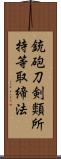 銃砲刀剣類所
持等取締法